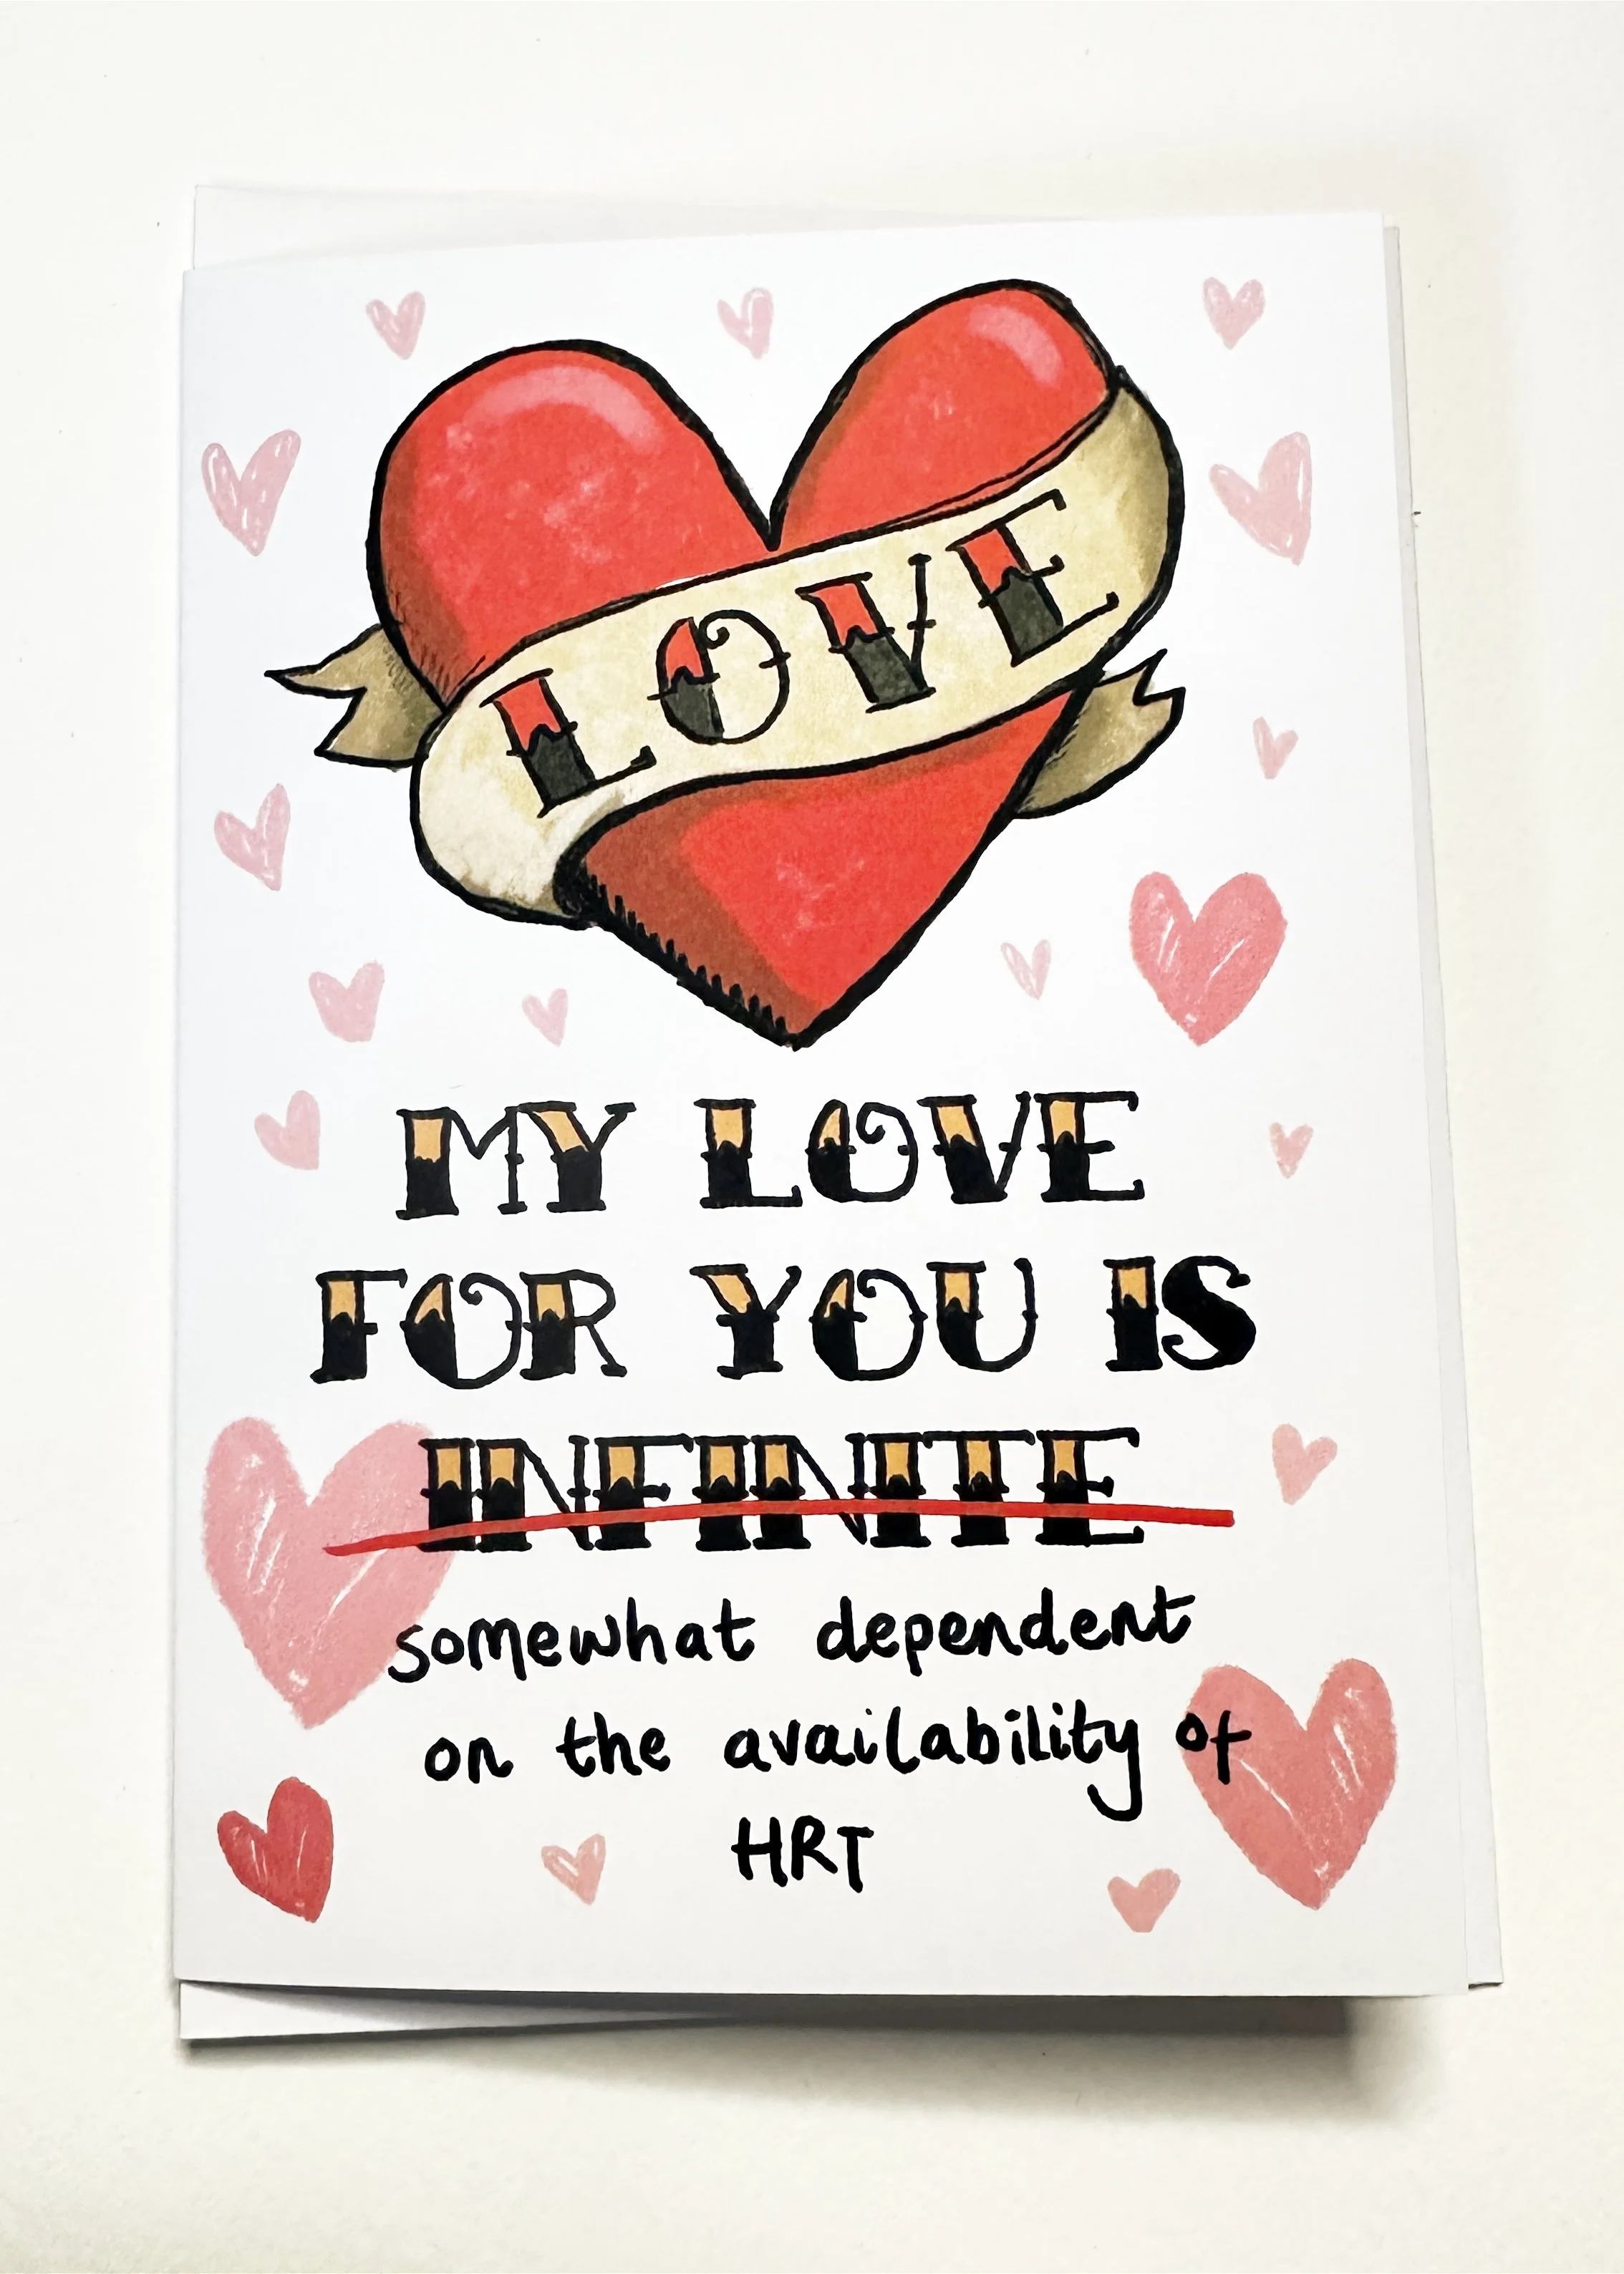 LOVE
MY LOVE
FOR YOU IS
INFINITE
somewhat dependent
on the availability of
HRT